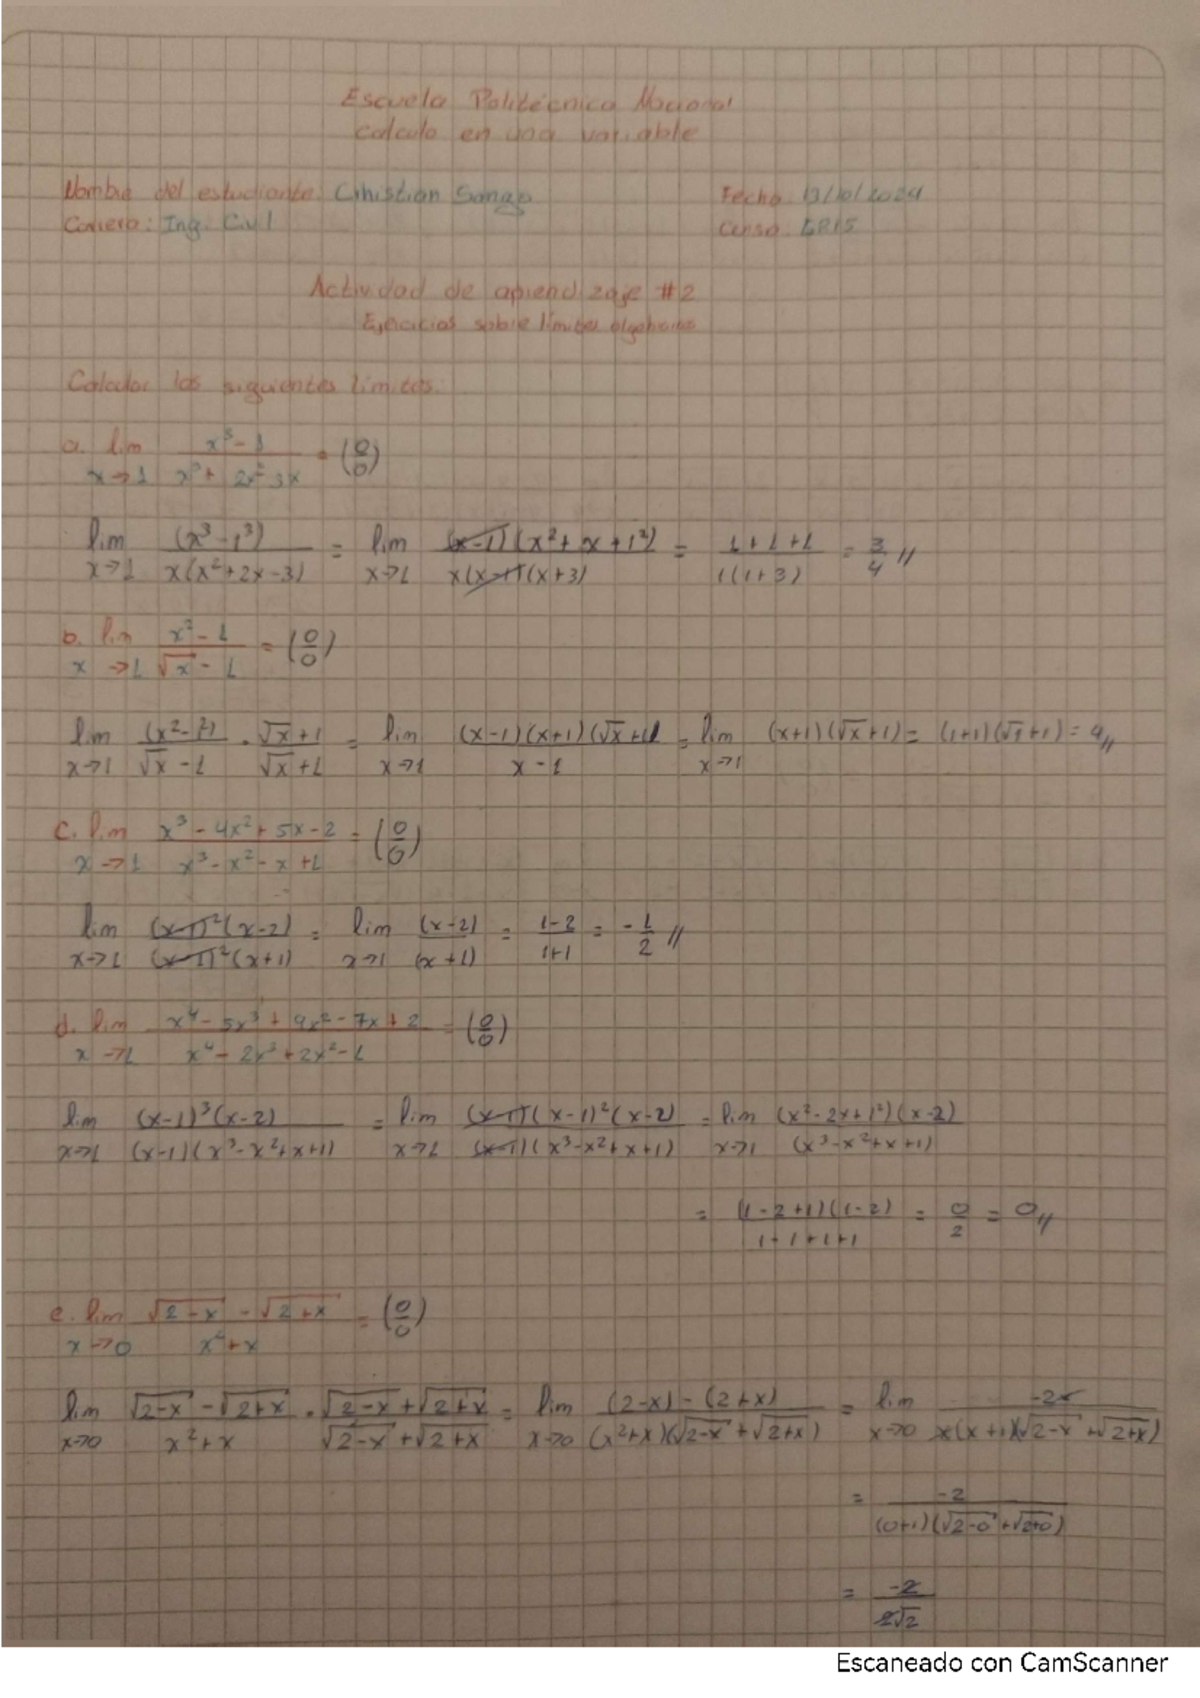 Escuela Politécnica Nacional
Calculo en una variable
Nombre del estudiante: Cihistian Sango
Fecha: 13/10/2024
Carrera: Ing. Civil
Curso: GR15
Actividad de aprendizaje #2
Ejercicios sobre límites algebraicos
Calcular los siguientes límites:
a. lim x→1 (x³ - 1)/(x³ + 2x² - 3x) = (0/0)
lim x→1 (x³ - 1³)/(x(x² + 2x - 3)) = lim x→1 ((x-1)(x² + x + 1²))/(x(x-1)(x+3)) = (1+1+1)/(1(1+3)) = 3/4 //
b. lim x→1 (x² - 1)/(√x - 1) = (0/0)
lim x→1 (x² - 1²)/(√x - 1) · (√x + 1)/(√x + 1) = lim x→1 ((x-1)(x+1)(√x + 1))/(x - 1) = lim x→1 (x+1)(√x + 1) = (1+1)(√1 + 1) = 4 //
c. lim x→1 (x³ - 4x² + 5x - 2)/(x³ - x² - x + 1) = (0/0)
lim x→1 ((x-1)²(x-2))/((x-1)²(x+1)) = lim x→1 (x-2)/(x+1) = (1-2)/(1+1) = -1/2 //
d. lim x→1 (x⁴ - 5x³ + 9x² - 7x + 2)/(x⁴ - 2x³ + 2x² - 1) = (0/0)
lim x→1 ((x-1)³(x-2))/((x-1)(x³ - x² + x + 1)) = lim x→1 ((x-1)(x-1)²(x-2))/((x-1)(x³ - x² + x + 1)) = lim x→1 ((x² - 2x + 1²)(x-2))/(x³ - x² + x + 1)
= ((1 - 2 + 1)(1-2))/(1 - 1 + 1 + 1) = 0/2 = 0 //
e. lim x→0 (√(2-x) - √(2+x))/(x² + x) = (0/0)
lim x→0 (√(2-x) - √(2+x))/(x² + x) · (√(2-x) + √(2+x))/(√(2-x) + √(2+x)) = lim x→0 ((2-x) - (2+x))/((x²+x)(√(2-x) + √(2+x))) = lim x→0 (-2x)/(x(x+1)(√(2-x) + √(2+x)))
= -2/((0+1)(√(2-0) + √(2+0)))
= -2/(2√2)
Escaneado con CamScanner